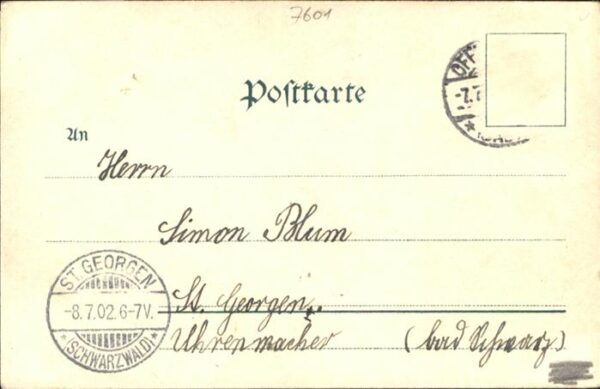 7601
Postkarte
OFF
-7.7
An
Herrn
Simon Blum
St. Georgen
Uhrenmacher (bad Schwarz)
ST. GEORGEN
-8.7.02.6-7V.
*(SCHWARZWALD)*